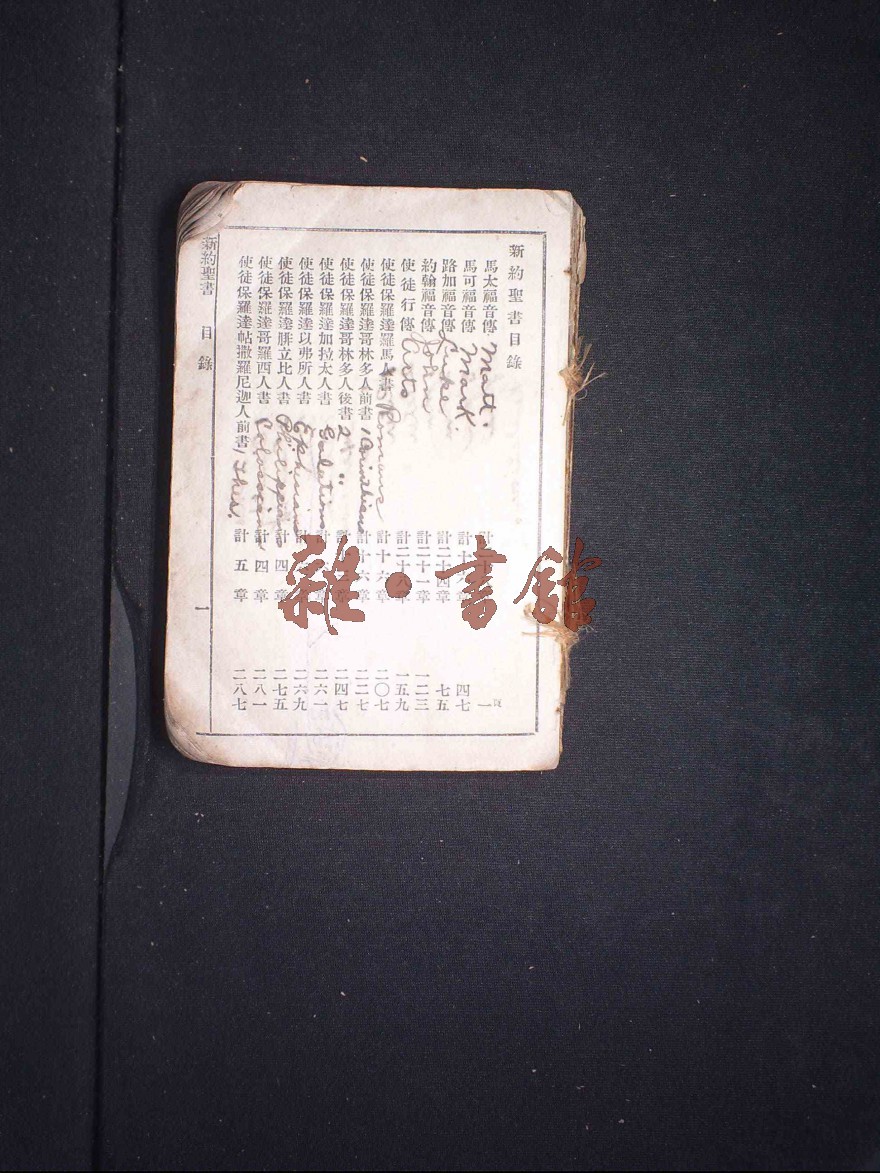 新約聖書目錄
馬太福音傳 Matt. 計 章 一 頁
馬可福音傳 Mark. 計十六章 四七
路加福音傳 Luke 計二十四章 七五
約翰福音傳 John 計二十一章 一二三
使徒行傳 Acts 計二十八章 一五九
使徒保羅達羅馬人書 Romans 計十六章 二〇七
使徒保羅達哥林多人前書 1 Corinthians 計十六章 二二七
使徒保羅達哥林多人後書 2 " 計 章 二四七
使徒保羅達加拉太人書 Galatians 計 章 二六一
使徒保羅達以弗所人書 Ephesians 計 章 二六九
使徒保羅達腓立比人書 Philippians 計四章 二七五
使徒保羅達哥羅西人書 Colossians 計四章 二八一
使徒保羅達帖撒羅尼迦人前書 1 Thes. 計五章 二八七
新約聖書 目錄 一
雜·書館